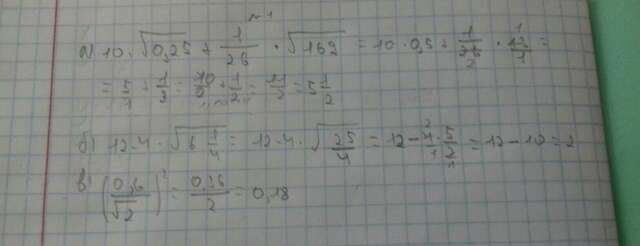 №1
а) 10 · √0,25 + 1/26 · √169 = 10 · 0,5 + 1/26 · 13/1 =
= 5/1 + 1/2 = 10/2 + 1/2 = 11/2 = 5 1/2
б) 12-4 · √6 1/4 = 12-4 · √25/4 = 12 - 4/1 · 5/2 = 12 - 10 = 2
в) (0,6/√2)² = 0,36/2 = 0,18